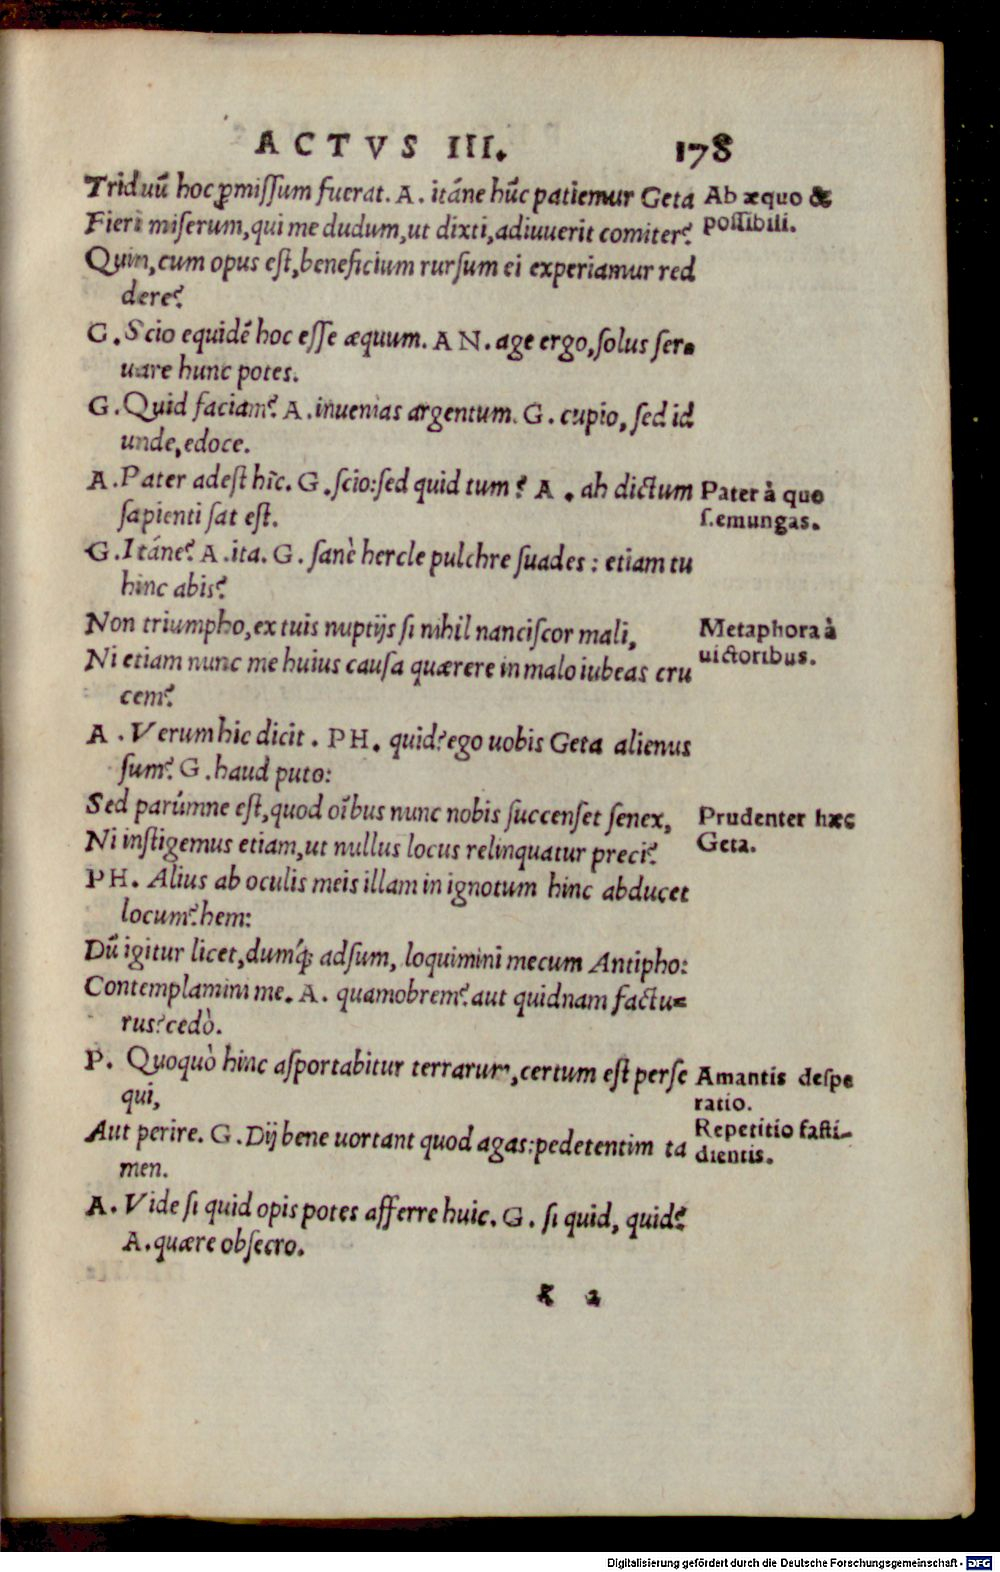 ACTVS III. 178
Triduũ hoc ꝓmiſſum fuerat. A. itáne hũc patiemur Geta
Fieri miſerum, qui me dudum, ut dixti, adiuuerit comiter?
Quin, cum opus eſt, beneficium rurſum ei experiamur red
dere?
G. Scio equidẽ hoc eſſe æquum. AN. age ergo, ſolus ſer-
uare hunc potes.
G. Quid faciam? A. inuenias argentum. G. cupio, ſed id
unde, edoce.
A. Pater adeſt hîc. G. ſcio: ſed quid tum? A. ah dictum
ſapienti ſat eſt.
G. Itáne? A. ita. G. ſanè hercle pulchre ſuades: etiam tu
hinc abis?
Non triumpho, ex tuis nuptijs ſi nihil nanciſcor mali,
Ni etiam nunc me huius cauſa quærere in malo iubeas cru
cem?
A. Verum hic dicit. PH. quid? ego uobis Geta alienus
ſum? G. haud puto:
Sed parúmne eſt, quod oĩbus nunc nobis ſuccenſet ſenex,
Ni inſtigemus etiam, ut nullus locus relinquatur preci?
PH. Alius ab oculis meis illam in ignotum hinc abducet
locum? hem:
Dũ igitur licet, dumq́; adſum, loquimini mecum Antipho:
Contemplamini me. A. quamobrem? aut quidnam factu-
rus? cedò.
P. Quoquò hinc aſportabitur terrarum, certum eſt perſe
qui,
Aut perire. G. Dij bene uortant quod agas: pedetentim ta
men.
A. Vide ſi quid opis potes afferre huic. G. ſi quid, quid?
A. quære obſecro.
Ab æquo &
poſſibili.
Pater à quo
ſ. emungas.
Metaphora à
uictoribus.
Prudenter hæc
Geta.
Amantis deſpe
ratio.
Repetitio faſti-
dientis.
z 2
Digitalisierung gefördert durch die Deutsche Forschungsgemeinschaft - DFG